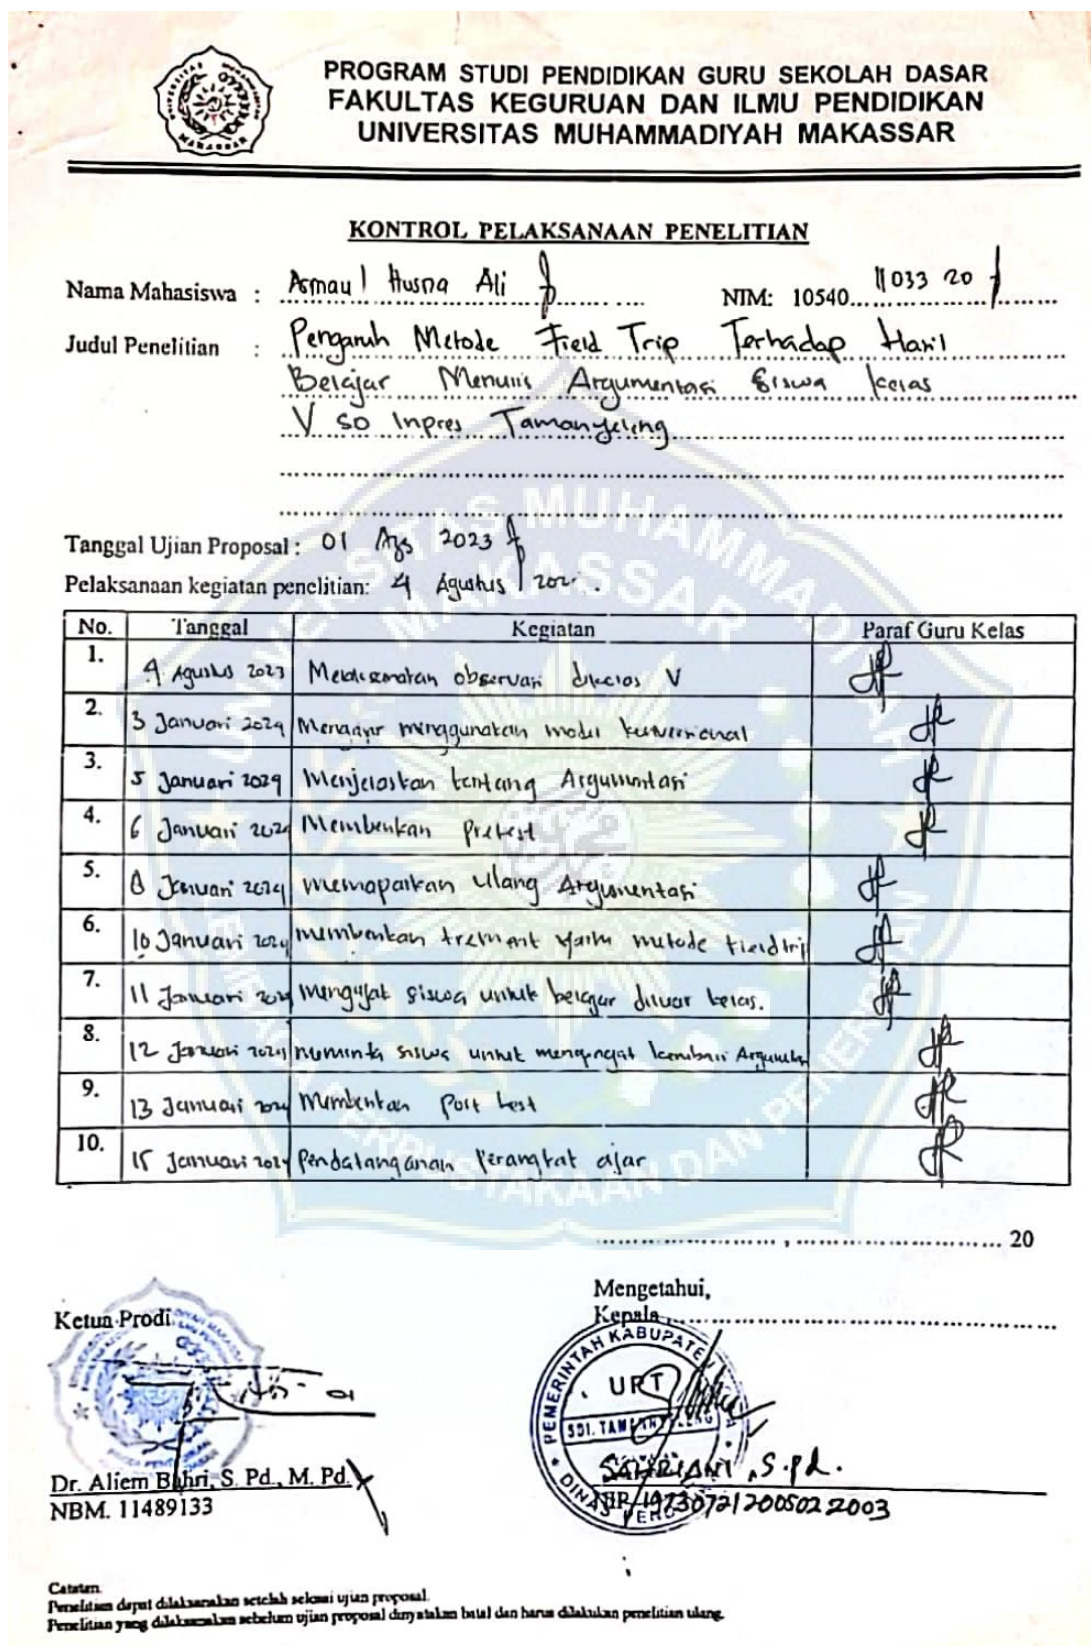 PROGRAM STUDI PENDIDIKAN GURU SEKOLAH DASAR
FAKULTAS KEGURUAN DAN ILMU PENDIDIKAN
UNIVERSITAS MUHAMMADIYAH MAKASSAR
KONTROL PELAKSANAAN PENELITIAN
Nama Mahasiswa : Asmaul Husna Ali NIM: 10540 11033 20
Judul Penelitian : Pengaruh Metode Field Trip Terhadap Hasil
Belajar Menulis Argumentasi Siswa kelas
V SD Inpres Tamanyeleng
Tanggal Ujian Proposal : 01 Ags 2023
Pelaksanaan kegiatan penelitian: 4 Agustus
No. Tanggal Kegiatan Paraf Guru Kelas
1. 4 Agustus 2023 observasi dikelas V
2. 3 Januari 2024 Mengajar menggunakan model
3. 5 Januari 2024 Menjelaskan tentang Argumentasi
4. 6 Januari 2024 Memberikan Pretest
5. 8 Januari 2024 memaparkan ulang Argumentasi
6. 10 Januari 2024 memberikan metode fieldtrip
7. 11 Januari 2024 siswa untuk belajar diluar kelas.
8. 12 Januari 2024 siswa untuk mengingat kembali
9. 13 Januari 2024 Memberikan Post test
10. 15 Januari 2024 Perangkat ajar
.............................. , .............................. 20
Mengetahui,
Ketua Prodi
Kepala
PEMERINTAH KABUPATEN
UPT
SDI. TAMANYELENG
Dr. Aliem Bahri, S. Pd., M. Pd.
SAHRIANI, S.pd.
NBM. 11489133
NIP. 197307212005022003
Catatan.
Penelitian dapat dilaksanakan setelah selesai ujian proposal.
Penelitian yang dilaksanakan sebelum ujian proposal dinyatakan batal dan harus dilakukan penelitian ulang.
UNIVERSITAS MUHAMMADIYAH
MAKASSAR
PERPUSTAKAAN DAN PENERBITAN